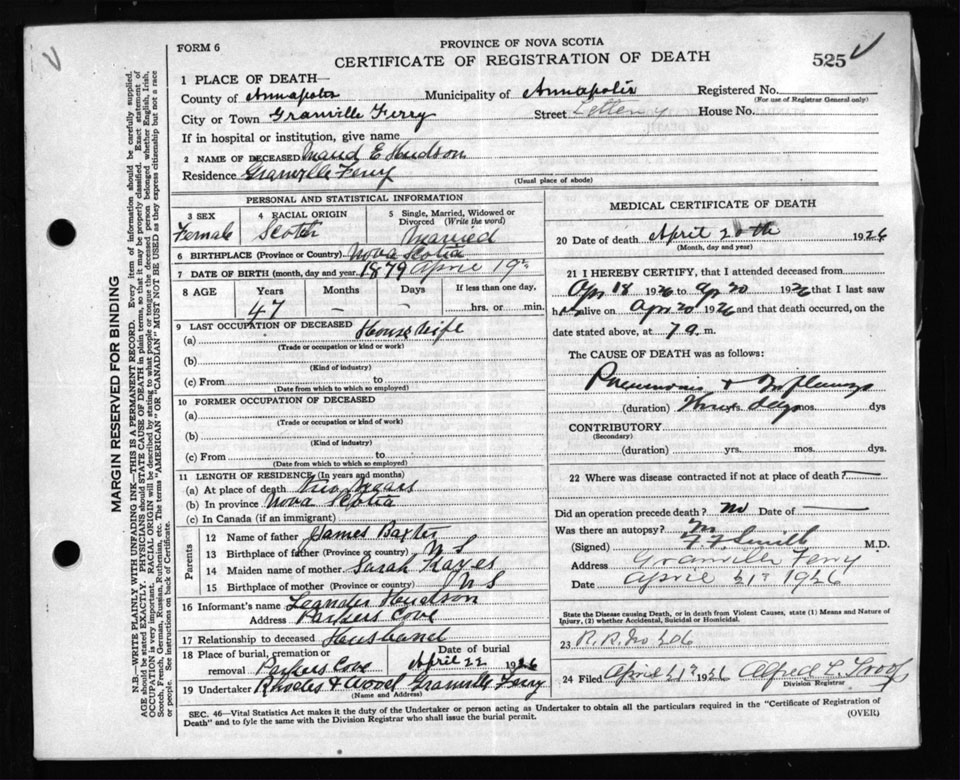 FORM 6
PROVINCE OF NOVA SCOTIA
CERTIFICATE OF REGISTRATION OF DEATH
525
1 PLACE OF DEATH—
County of Annapolis Municipality of Annapolis Registered No.
(For use of Registrar General only)
City or Town Granville Ferry Street House No.
If in hospital or institution, give name
2 NAME OF DECEASED Maud E Hudson
Residence Granville Ferry
(Usual place of abode)
PERSONAL AND STATISTICAL INFORMATION
3 SEX 4 RACIAL ORIGIN 5 Single, Married, Widowed or Divorced (Write the word)
Female Scotch Married
6 BIRTHPLACE (Province or Country) Nova Scotia
7 DATE OF BIRTH (month, day and year) 1879 April 19th
8 AGE Years Months Days If less than one day,
47 — — hrs. or min.
9 LAST OCCUPATION OF DECEASED
(a) Housewife
(Trade or occupation or kind or work)
(b)
(Kind of industry)
(c) From to
(Date from which to which so employed)
10 FORMER OCCUPATION OF DECEASED
(a)
(Trade or occupation or kind of work)
(b)
(Kind of industry)
(c) From to
(Date from which to which so employed)
11 LENGTH OF RESIDENCE (In years and months)
(a) At place of death Two Years
(b) In province Nova Scotia
(c) In Canada (if an immigrant)
Parents
12 Name of father James Baxter
13 Birthplace of father (Province or country) N S
14 Maiden name of mother Sarah Hayes
15 Birthplace of mother (Province or country) N S
16 Informant's name Leander Hudson
Address Parkers Cove
17 Relationship to deceased Husband
18 Place of burial, cremation or removal Parkers Cove Date of burial April 22 1926
19 Undertaker Rhodes & Wood Granville Ferry
(Name and Address)
MEDICAL CERTIFICATE OF DEATH
20 Date of death April 20th 1926
(Month, day and year)
21 I HEREBY CERTIFY, that I attended deceased from
Apr 18 1926 to Ap 20 1926 that I last saw
h alive on Apr 20 1926 and that death occurred, on the
date stated above, at 7 a. m.
The CAUSE OF DEATH was as follows:
Pneumonia & Influenza
(duration) Three yrs. days mos. dys
CONTRIBUTORY
(Secondary)
(duration) yrs. mos. dys
22 Where was disease contracted if not at place of death?
Did an operation precede death? No Date of
Was there an autopsy? No
(Signed) F F Smith M.D.
Address Granville Ferry
Date April 21st 1926
State the Disease causing Death, or in death from Violent Causes, state (1) Means and Nature of
Injury, (2) whether Accidental, Suicidal or Homicidal.
23 R.R. No 286
24 Filed April 21st 1926 Alfred L.
Division Registrar
SEC. 46—Vital Statistics Act makes it the duty of the Undertaker or person acting as Undertaker to obtain all the particulars required in the "Certificate of Registration of
Death" and to fyle the same with the Division Registrar who shall issue the burial permit.
(OVER)
MARGIN RESERVED FOR BINDING
N.B.—WRITE PLAINLY WITH UNFADING INK—THIS IS A PERMANENT RECORD. Every item of information should be carefully supplied.
AGE should be stated EXACTLY. PHYSICIANS should STATE CAUSE OF DEATH in plain terms, so that it may be properly classified. Exact statement of
OCCUPATION is very important. RACIAL ORIGIN will be described by stating to what people or tongue the deceased person belonged whether English, Irish,
Scotch, French, German, Russian, Ruthenian, etc. The terms "AMERICAN" OR "CANADIAN" MUST NOT BE USED as they express citizenship but not a race
or people. See instructions on back of Certificate.